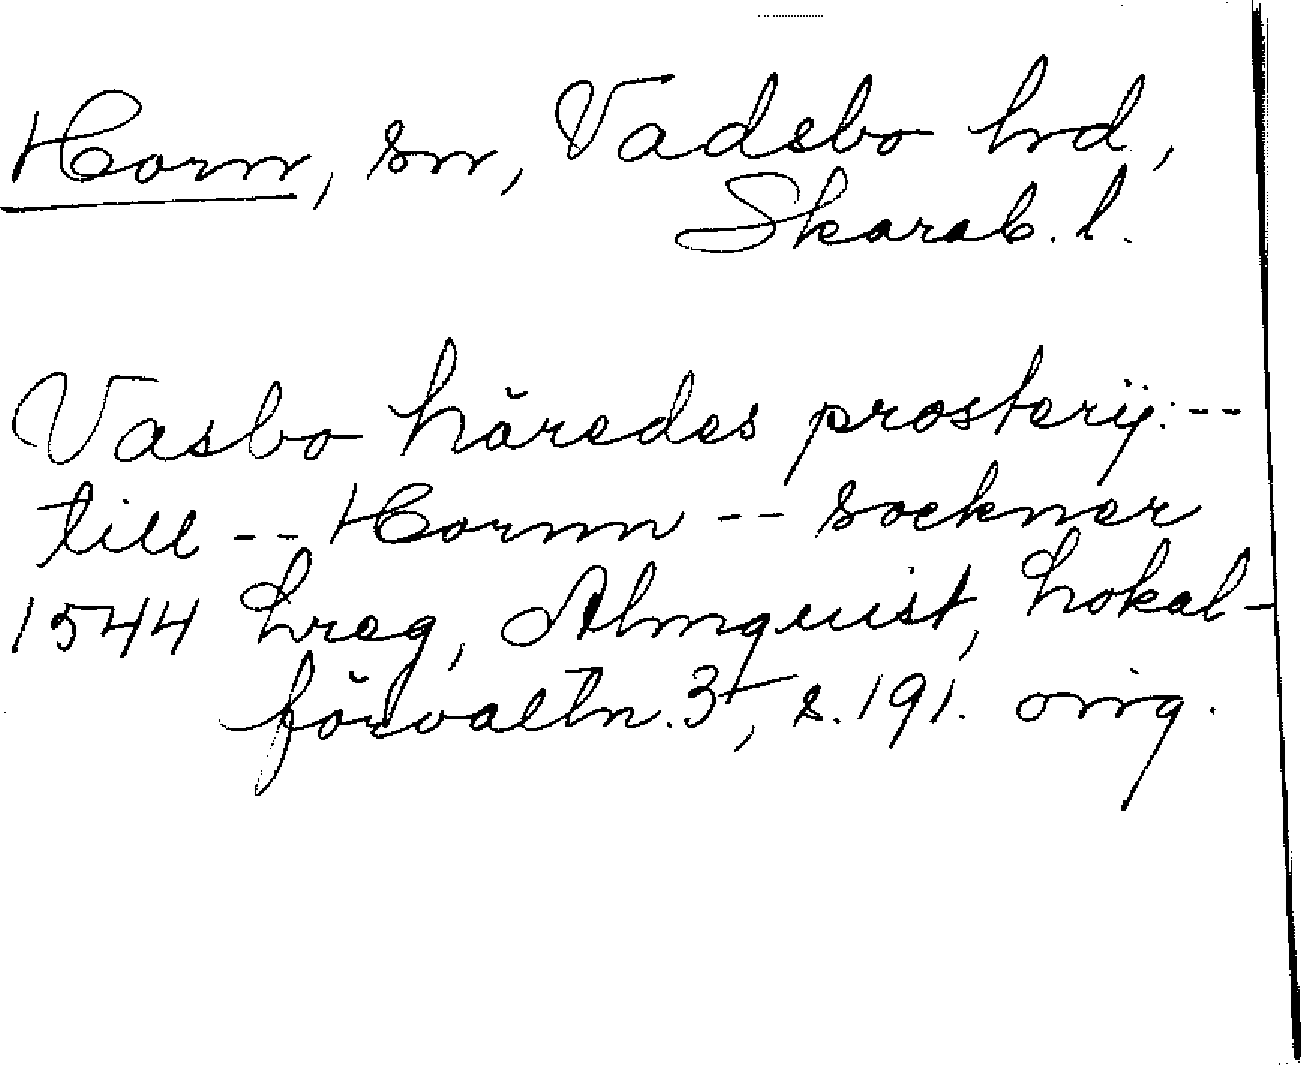 Horn, sn, Vadsbo hrd,
Skarab. l.
Vasbo häredes prosterij: --
till -- Hornn -- sockner
1544 Lreg, Almquist, Lokal-
förvaltn. 3, s. 191. orig.